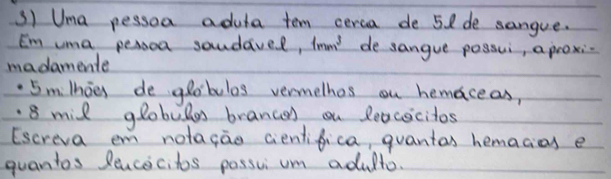 3) Uma pessoa aduta tem cerca de 5l de sangue.
Em uma pessoa saudável, 1mm³ de sangue possui, aproxi-
madamente
• 5 milhões de glóbulos vermelhos ou hemáceas,
• 8 mil globulos brancos ou leucócitos
Escreva em notação cientifica, quantas hemacias e
quantos leucócitos possui um adulto.